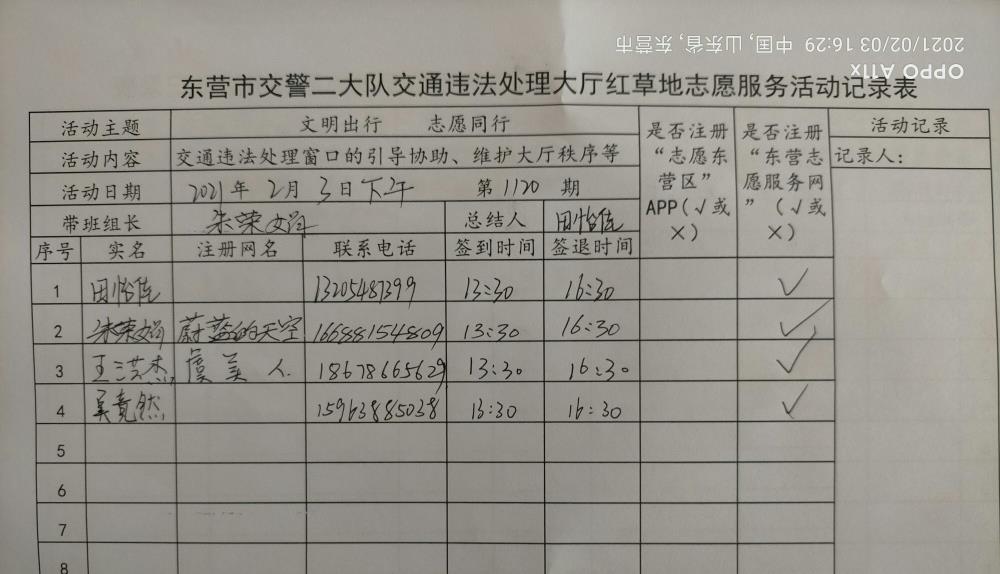 2021/02/03 16:29 中国, 山东省, 东营市
OPPO A11x
东营市交警二大队交通违法处理大厅红草地志愿服务活动记录表
活动主题 文明出行 志愿同行 是否注册“志愿东营区”APP(√或×) 是否注册“东营志愿服务网”(√或×) 活动记录
活动内容 交通违法处理窗口的引导协助、维护大厅秩序等 记录人:
活动日期 2021年2月3日下午 第1120期
带班组长 朱荣娟 总结人 田怡佳
序号 实名 注册网名 联系电话 签到时间 签退时间
1 田怡佳 13205487399 13:30 16:30 √
2 朱荣娟 蔚蓝的天空 16688154809 13:30 16:30 √
3 王洪杰 虞美人 18678665629 13:30 16:30 √
4 吴竟然 15963885038 13:30 16:30 √
5
6
7
8